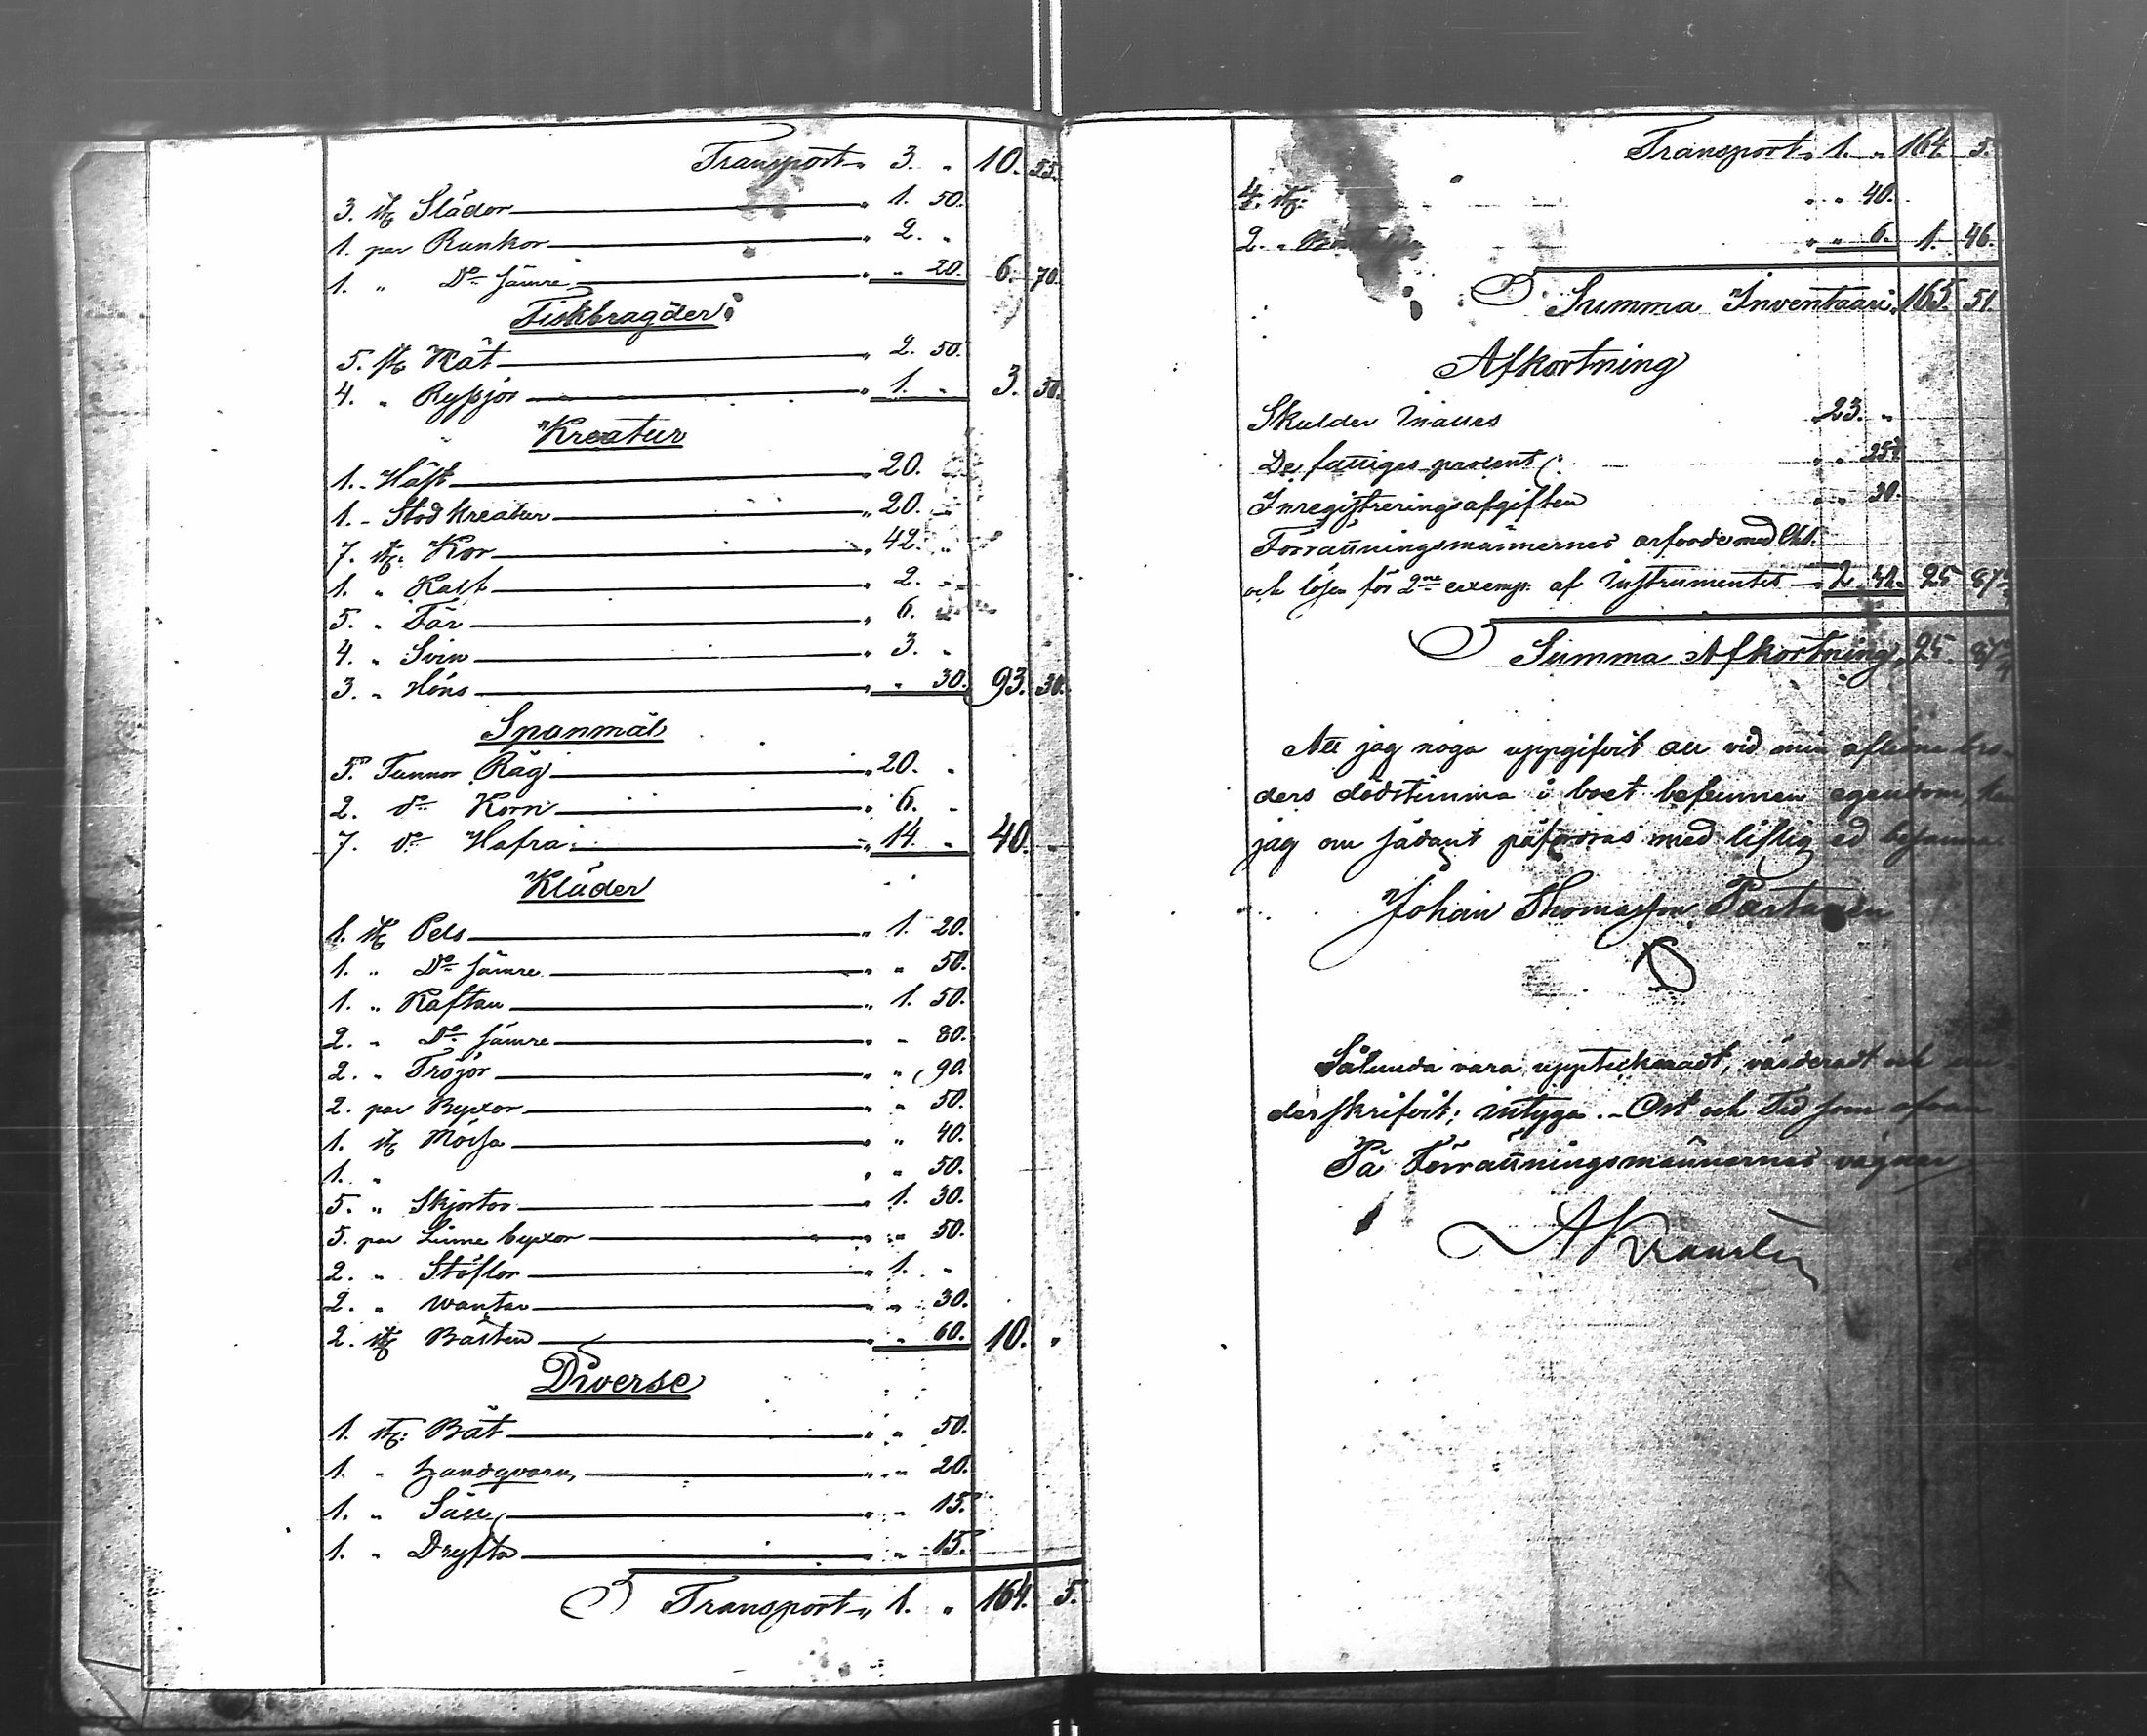 Transport " 3. " 10. 55.
3. st. Slädor " 1. 50.
1. par Rankor " 2. "
1. " Do sämre " " 20. 6. 70.
Fiskbragder
5. st. Nät " 2. 50.
4. " Ryssjor " 1. " 3. 50.
Kreatur
1. Häst " 20.
1. Stod kreatur " 20. "
7. st. Kor " 42. "
1. " Kalf " 2. "
5. " Får " 6. "
4. " Svin " 3. "
3. " Höns " " 30. 93. 30.
Spanmål
5. Tunnor Råg " 20. "
2. do Korn " 6. "
7. do Hafra " 14. " 40. "
Kläder
1. st. Pels " 1. 20.
1. " Do sämre " " 50.
1. " Kaftan " 1. 50.
2. " Do sämre " " 80.
2. " Tröjor " " 90.
2. par Byxor " " 50.
1. st. Mössa " " 40.
1. " " " 50.
5. " Skjortor " 1. 30.
5. par Linne byxor " " 50.
2. " Stöflor " 1. "
2. " wantar " " 30.
2. st. Bälten " " 60. 10. "
Diverse
1. st. Båt " " 50.
1. " Handqvarn, " " 20.
1. " Såll " " 15.
1. " Dryfta " " 15.
Transport " 1. " 164. 5.
Transport " 1. " 164. 5.
4. st. " " 40.
2. " " " 6. 1. 46.
Summa Inventaari 165. 51.
Afkortning
Skulder inalles 23. "
De fattiges procent " "
Inregistreringsafgiften " " 30.
Förrättningsmännernes arfvode med
och lösen för 2ne exempr. af Instrumentet 2. 25
Summa Afkortning 25.
Att jag noga uppgifvit all vid min aflidne bro-
ders dödstimma i boet befunnen egendom,
jag om sådant påfordras med liflig ed besanna
Johan Thomasson Partanen
Sålunda vara upptecknadt, värderadt och
derskrifvit; intyga. Ort och Tid som ofvan
På Förrättningsmännernes vägnar